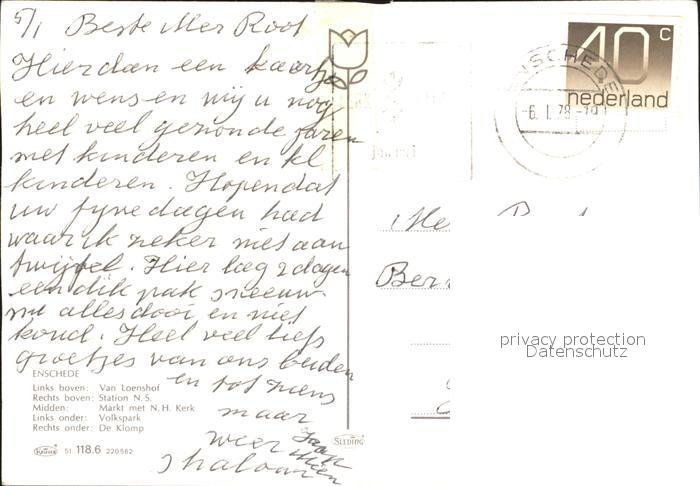 5/1 Beste Mev Root
Hierdan een kaartje
en wensen wij u nog
heel veel gezonde jaren
met kinderen en kl
kinderen. Hopen dat
uw fijne dagen had
waar ik zeker niet aan
twijfel. Hier lag 2 dagen
een dik pak sneeuw
nu alles dooi en niet
koud. Heel veel liefs
groetjes van ons beiden
en tot ziens
maar
weer
ENSCHEDE
Links boven: Van Loenshof
Rechts boven: Station N.S.
Midden: Markt met N.H. Kerk
Links onder: Volkspark
Rechts onder: De Klomp
KRUGER
51 118.6 220562
SLEDING
40 c
nederland
ENSCHEDE
-6. I. 78
Ber
privacy protection
Datenschutz